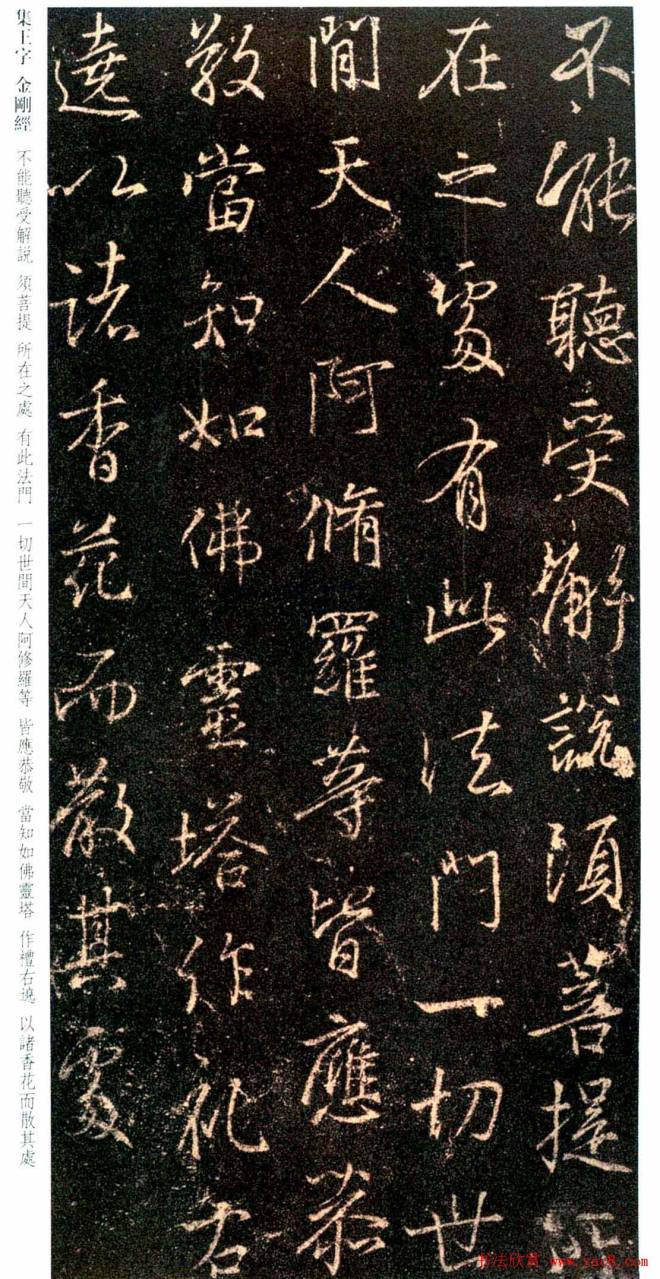 不能聽受解說須菩提所
在之處有此法門一切世
間天人阿脩羅等皆應恭
敬當知如佛靈塔作礼右
遶以諸香花而散其處
集王字 金剛經 不能聽受解説 須菩提 所在之處 有此法門 一切世間天人阿修羅等 皆應恭敬 當知如佛靈塔 作禮右遶 以諸香花而散其處
书法欣赏 www.yac8.com